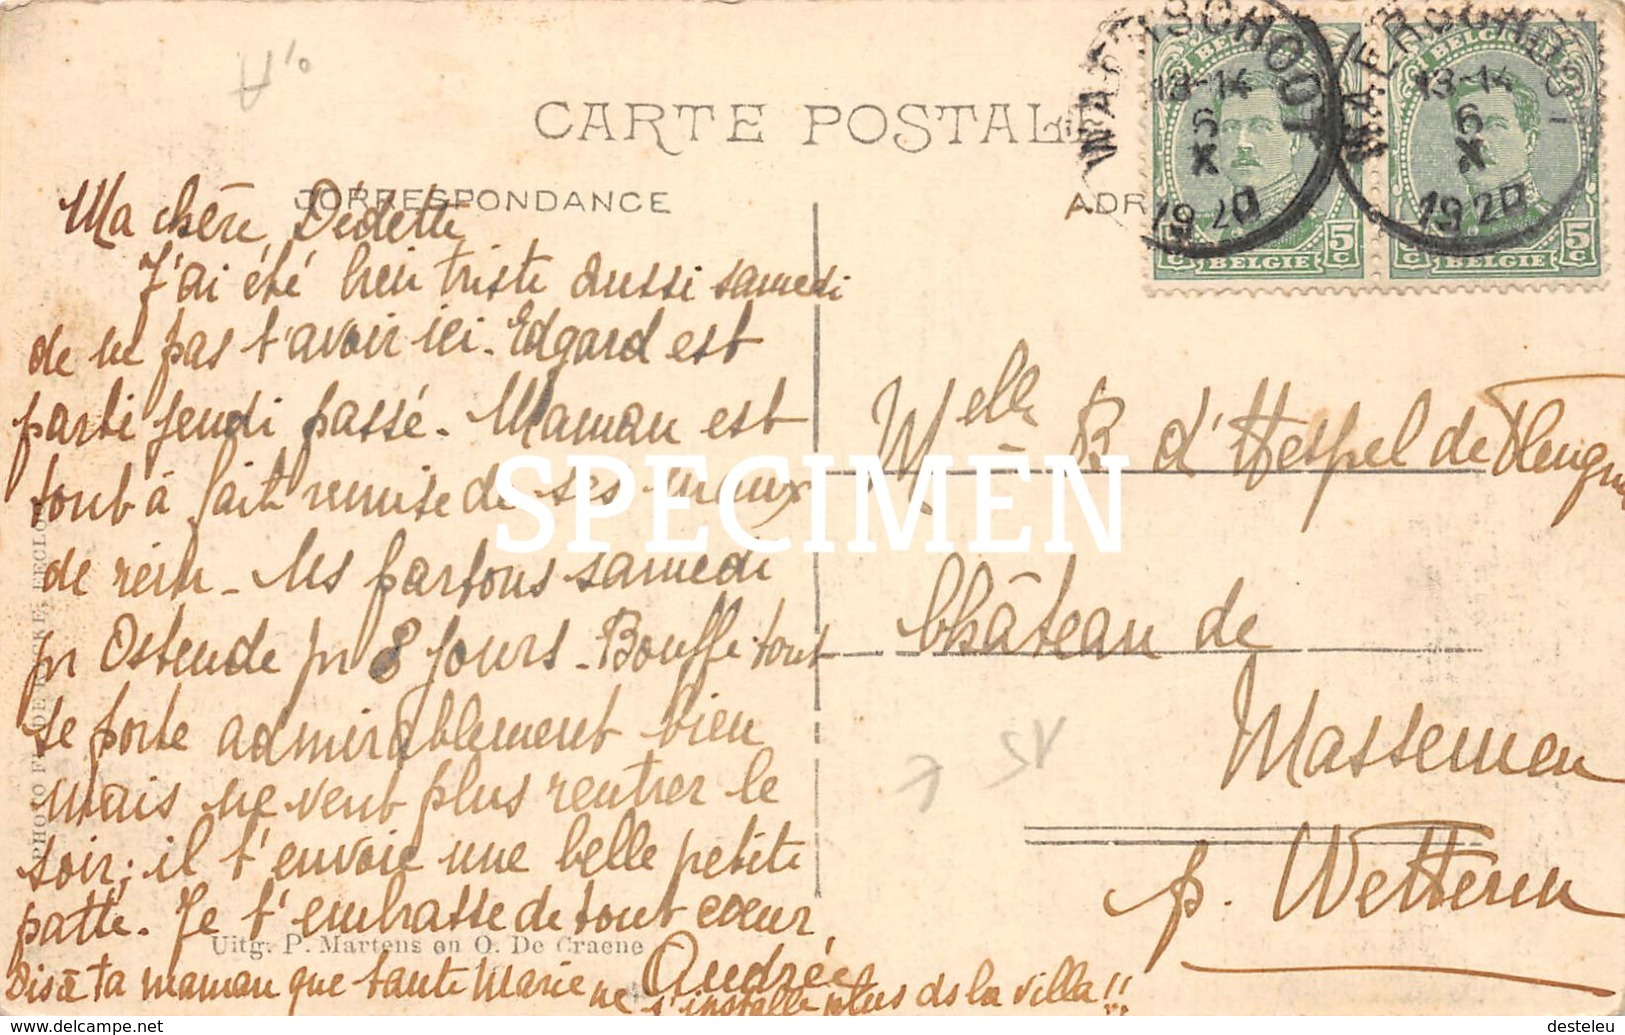 CARTE POSTALE
CORRESPONDANCE
ADR
WAERSCHOOT
13-14
6
X
1920
WAERSCHOOT
13-14
6
X
1920
5
c
BELGIE
5
c
c
BELGIE
5
c
Ma chère Dédette
J'ai été bien triste aussi samedi
de ne pas t'avoir ici. Edgard est
parti jeudi passé. Maman est
tout à fait remise de ses maux
de rein - Ns partons samedi
pr Ostende pr 8 jours. Bouffi tout
se porte admirablement bien
mais ne veut plus rentrer le
soir; il t'envoie une belle petite
patte. Je t'embrasse de tout coeur
Andrée
Dis à ta maman que tante Marie ne s'installe plus ds la villa!!
Melle R d'Hespel de
Château de
Massemen
p. Wetteren
Uitg. P. Martens en O. De Craene
SPECIMEN
desteleu
www.delcampe.net